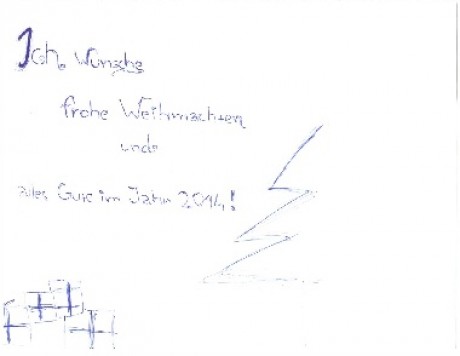 Ich wünsche
frohe Weihnachten
und
Alles Gute im Jahr 2014!